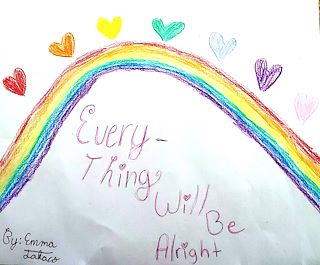 Every-
Thing
Will
Be
Alright
By: Emma